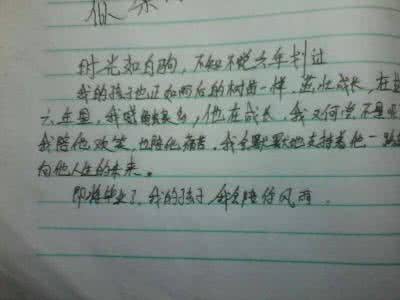 时光如白驹，不知不觉六年划过
我的孩子也正如雨后的树苗一样，茁壮成长，在这
六年里，我时时，他在成长，我又何尝不是呢
我陪他欢笑，也陪他痛苦。我会默默地支持着他一路
向他人生的未来。
即将毕业了，我的孩子，我会陪你风雨。